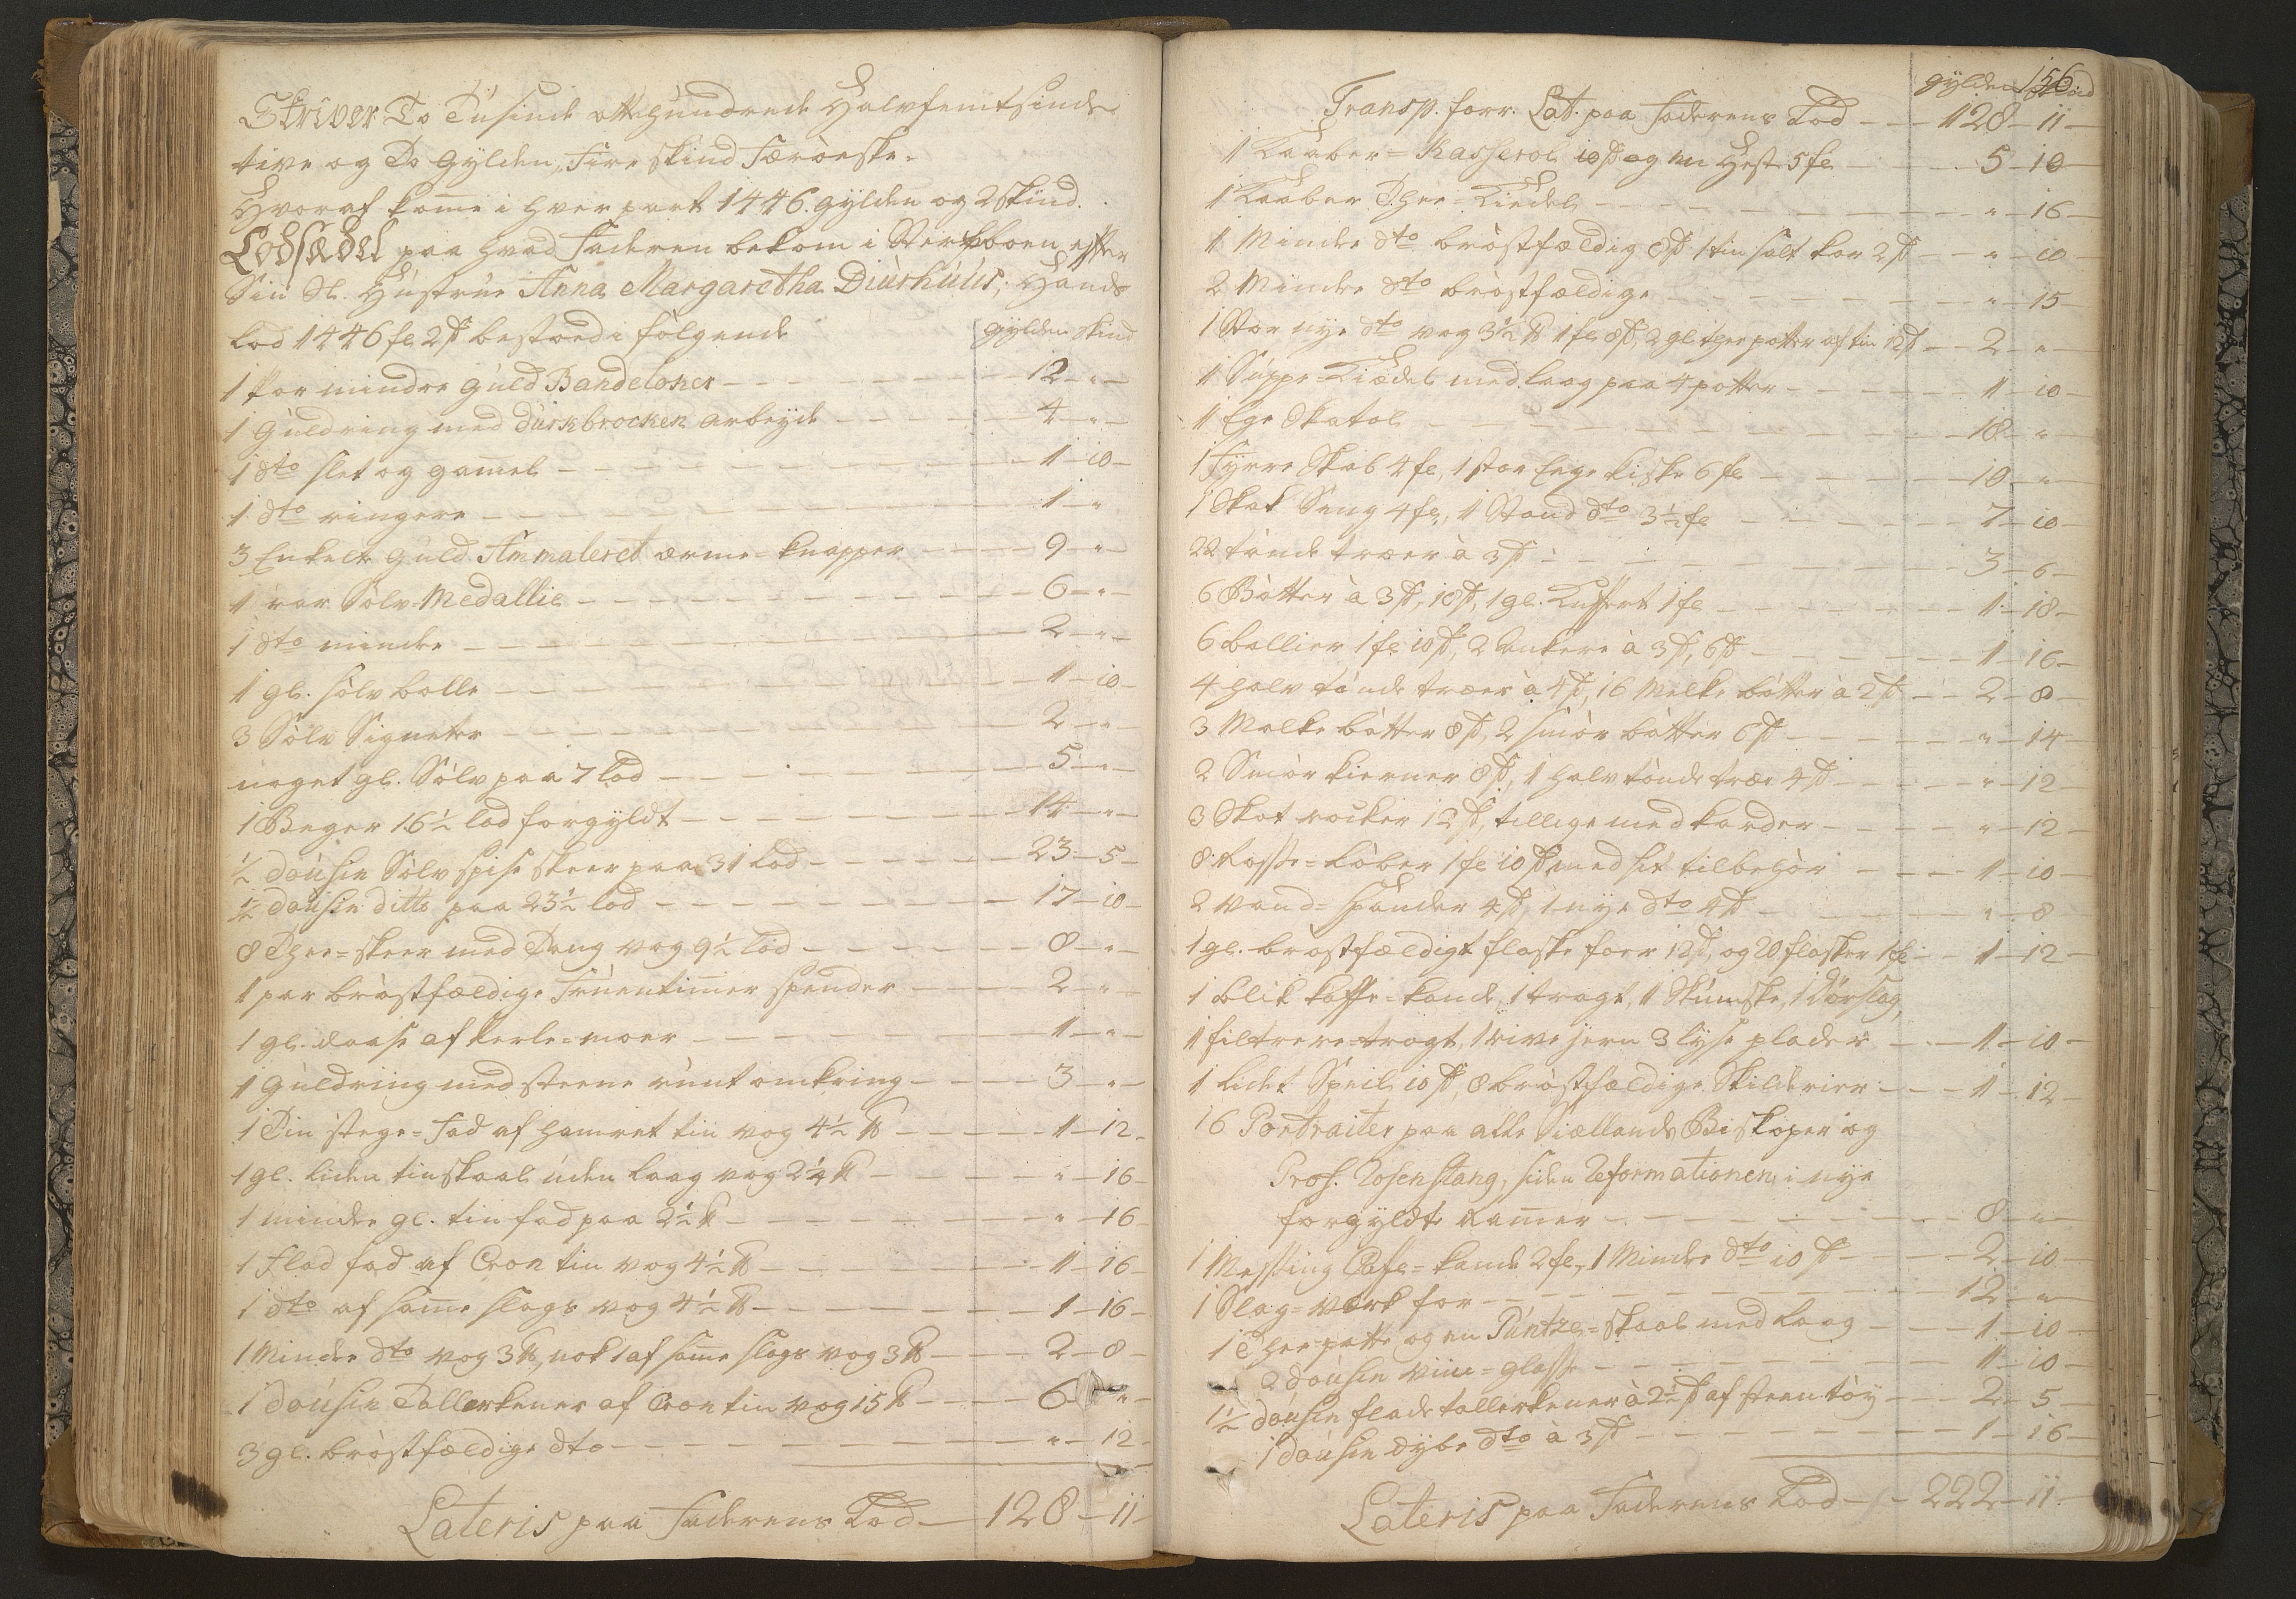 Skriver To Tusinde ottehundrede Halvfemtsinds
tive og To Gylden, Fire skind Færøeske.
Hvoraf kom̅e i hver part 1446. gylden og 2 skind.
Lodsædel paa hvad Faderen bekom i Sterfboen efter
Sin Sl. Hustrue Anna Margaretha Diurhuus, Hands
Lod 1446 fe 2 s bestaaed i følgende
gylden skind
1 Par mindre guld Bandeloker — 12 — " —
1 Guldring med durkbrocken arbeyde — 4 — " —
1 dto slet og gam̅el — 1 — 10 —
1 dto ringere — 1 — "
3 Enkelte guld Ammaleret ærme-knapper — 9 — " —
1 rar Sølv Medallie — 6 — " —
1 dto mindre — 2 — " —
1 gl. sølv bolle — 1 — 10 —
3 Sølv Signeter — 2 — " —
noget gl. Sølv paa 7 lod — 5 — " —
1 Beger 16½ lod forgyldt — 14 — " —
½ dousin Sølv spise skeer paa 31 Lod — 23 — 5 —
½ dousin ditto paa 23½ lod — 17 — 10 —
8 Thee-skeer med Tang vog 9½ lod — 8 — " —
1 par brøstfældige Fruentim̅er spender — 2 — " —
1 gl. daase af Perle-moer — 1 — " —
1 Guldring med steene runt omkring — 3 — " —
1 Tin stege-Fad af hamret tin vog 4½ ℔ — 1 — 12 —
1 gl. liden tinskaal uden laag vog 2¼ ℔ — " — 16 —
1 mindre gl. tin fad paa 2½ ℔ — " — 16 —
1 Flad fad af Cron tin vog 4½ ℔ — 1 — 16 —
1 dto af sam̅e slags vog 4½ ℔ — 1 — 16 —
1 Mindre dto vog 3 ℔, nok 1 af sam̅e slags vog 3 ℔ — 2 — 8 —
1 dousin Tallerkener af Cron tin vog 15 ℔ — 6 — " —
3 gl. brøstfældige dto — " — 12 —
Lateris paa Faderens Lod — 128 — 11 —
156
gylden skind
Transp. forr. Lat. paa Faderens Lod — 128 — 11 —
1 Kaaber-Kasserol 10 s og en Hest 5 fe — 5 — 10
1 Kaaber Thee-Kiedel — " — 16 —
1 Mindre dto brøstfældig 8 s 1 tin salt kar 2 s — " — 10 —
2 Mindre dto brøstfældige — " — 15 —
1 Stor nye dto vog 3½ ℔ 1 fe 8 s, 2 gl. thee potter af tin 12 s — 2 — " —
1 Suppe-Kiædel med laag paa 4 potter — 1 — 10 —
1 Ege Skatol — 18 — " —
1 Fyrre Skab 4 fe, 1 stor Eege kiste 6 fe — 10 — " —
1 Skak Seng 4 fe, 1 Stand dto 3½ fe — 7 — 10 —
22 tønde træer à 3 s — 3 — 6 —
6 Bøtter à 3 s, 18 s, 1 gl. Kuffert 1 fe — 1 — 18 —
6 ballier 1 fe 10 s, 2 ankere à 3 s, 6 s — 1 — 16 —
4 halv tønde træer à 4 s, 16 Melke bøtter à 2 s — 2 — 8 —
3 Malke bøtter 8 s, 2 smør bøtter 6 s — " — 14 —
2 Smør kierner 8 s, 1 halv tønde træe 4 s — " — 12 —
3 Skot rocker 12 s, tillige med karder — " — 12 —
8 Løber 1 fe 10 s med sit tilbehør — 1 — 10 —
2 vand-spander 4 s, 1 nye dto 4 s — " — 8
1 gl. brøstfældigt flaske foer 12 s, og 20 flasker 1 fe — 1 — 12 —
1 blik kaffe-kande, 1 tragt, 1 Skumske, 1 Dørslag,
1 filtrere-tragt, 1 rive jern 3 lyse plader — 1 — 10 —
1 lidet Speil 10 s, 8 brøstfældige Skilderier — 1 — 12 —
16 Portraiter paa alle Siællands Biskoper og
Prof. Rosenstang, siden Reformationen, i nye
forgyldte Ram̅er — 8 — " —
1 Messing Caffe-kande 2 fe, 1 Mindre dto 10 s — 2 — 10 —
1 Slag-værk for — 12 — " —
1 Thee potte og en Puntze-skaal med Laag — 1 — 10 —
2 dousin viin-glasse — 1 — 10 —
1½ dousin flade tallerkener à 2½ s af steen tøy — 2 — 5 —
1 dousin dybe dto à 3 s — 1 — 16 —
Lateris paa Faderens Lod — 222 — 11 —